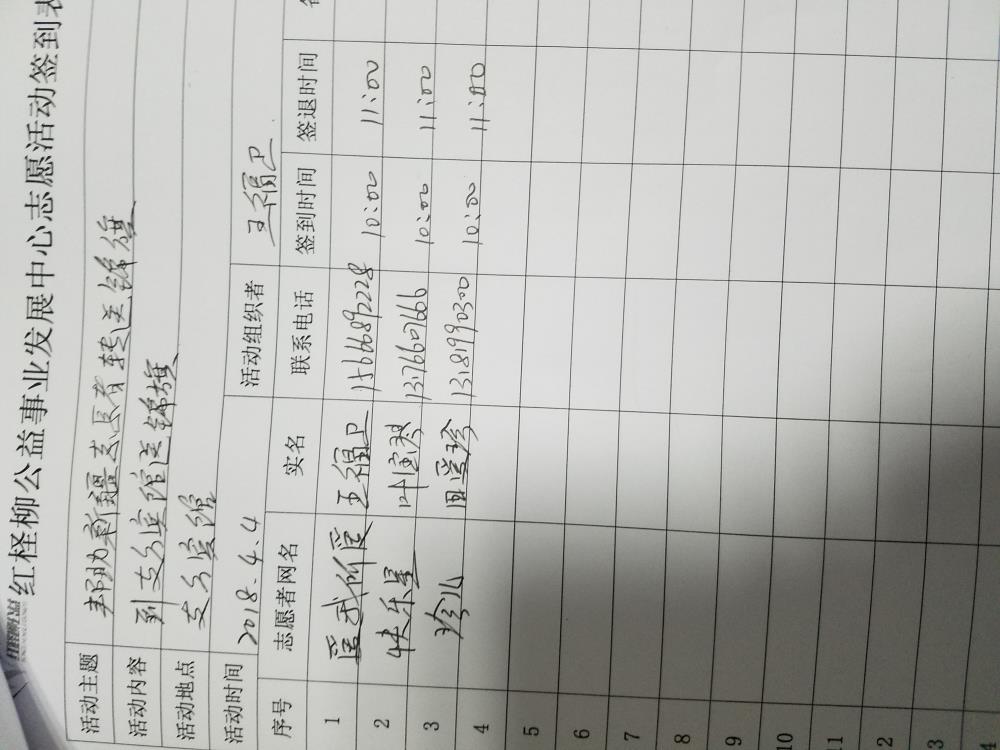 红柽柳公益事业发展中心志愿活动签到表
活动主题 帮助新疆志愿者转送锦旗
活动内容 到东方宾馆送锦旗
活动地点 东方宾馆
活动时间 2018.4.4 活动组织者 王福卫
序号 志愿者网名 实名 联系电话 签到时间 签退时间
1 爱我所爱 王福卫 15666892228 10:00 11:00
2 快乐星 叶宝琴 13766607666 10:00 11:00
3 珍儿 田爱珍 13181990300 10:00 11:00
4
5
6
7
8
9
10
11
12